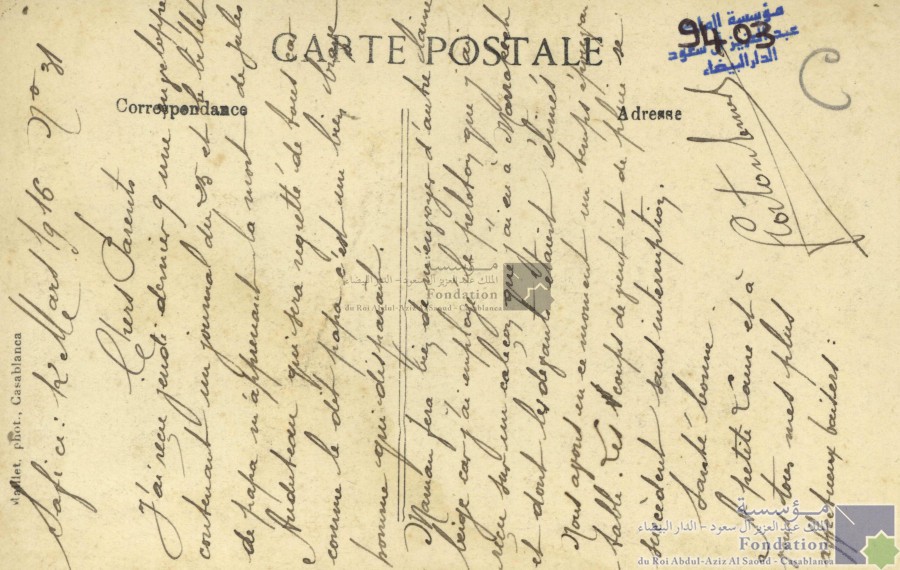 CARTE POSTALE
Correspondance
Adresse
9403
مؤسسة الملك
عبد العزيز آل سعود
الدار البيضاء
C
Maillet, phot., Casablanca
Safi ; le Mars 1916 N° 31
Chers Parents
J'ai reçu jeudi dernier 9 une enveloppe
contenant un journal du 25 et le billet
de papa m'apprenant la mort de Jules
Audeteau qui sera regretté de tous car
comme le dit papa c'est un bien brave
homme qui disparait.
Maman fera bien de m'envoyer d'autre laine
beige car j'ai employé le peloton que j'ai
reçu sur un caleçon que j'ai eu à Marrakech
et dont les devants étaient élimés.
Nous avons en ce moment un temps épouvan
table. Les coups de vent et de pluie se
succèdent sans interruption.
Santé bonne.
A petite tante et à
vous tous mes plus
affectueux baisers.
مؤسسة
الملك عبد العزيز آل سعود - الدار البيضاء
Fondation
du Roi Abdul-Aziz Al Saoud - Casablanca
مؤسسة
الملك عبد العزيز آل سعود - الدار البيضاء
Fondation
du Roi Abdul-Aziz Al Saoud - Casablanca